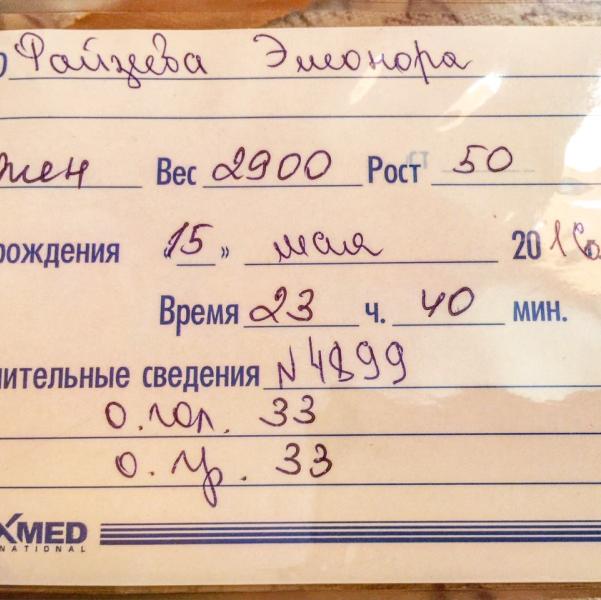 О Файзиева Элеонора
жен Вес 2900 Рост 50
рождения 15 » мая 2016
Время 23 ч. 40 мин.
нительные сведения N4899
о. гол. 33
о. гр. 33
XMED
NATIONAL